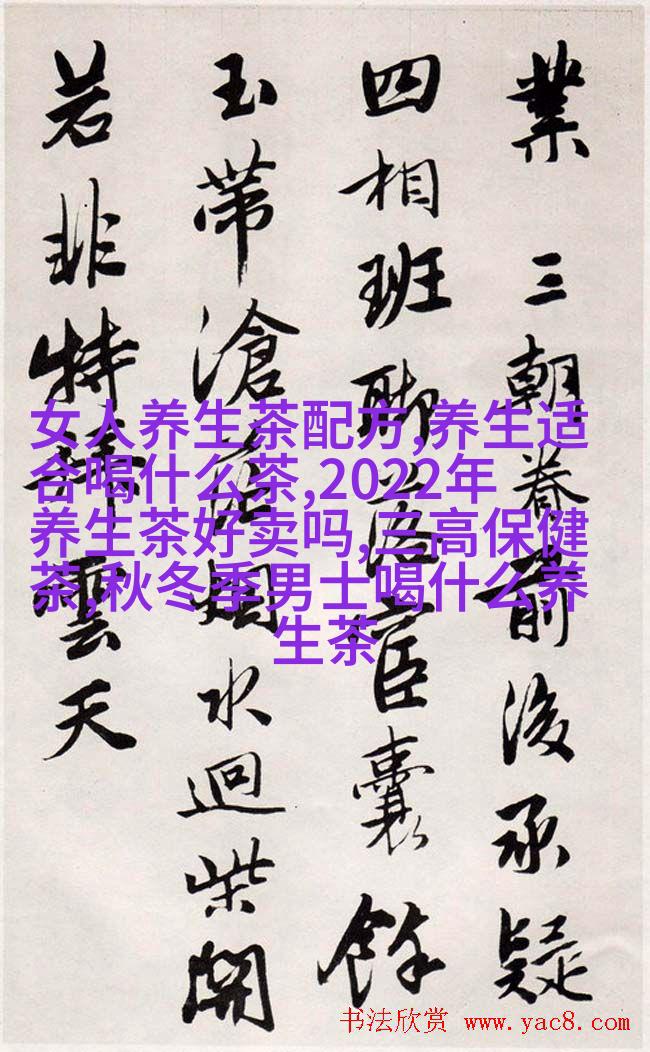 業 三朝眷前後承疑
四相班聯落宦囊餘
玉帶滄茫烟水迴柴
若非特雲天
女人养生茶配方,养生适
合喝什么茶,2022年
养生茶好卖吗,三高保健
茶,秋冬季男士喝什么养
生茶
书法欣赏 www.yac8.com